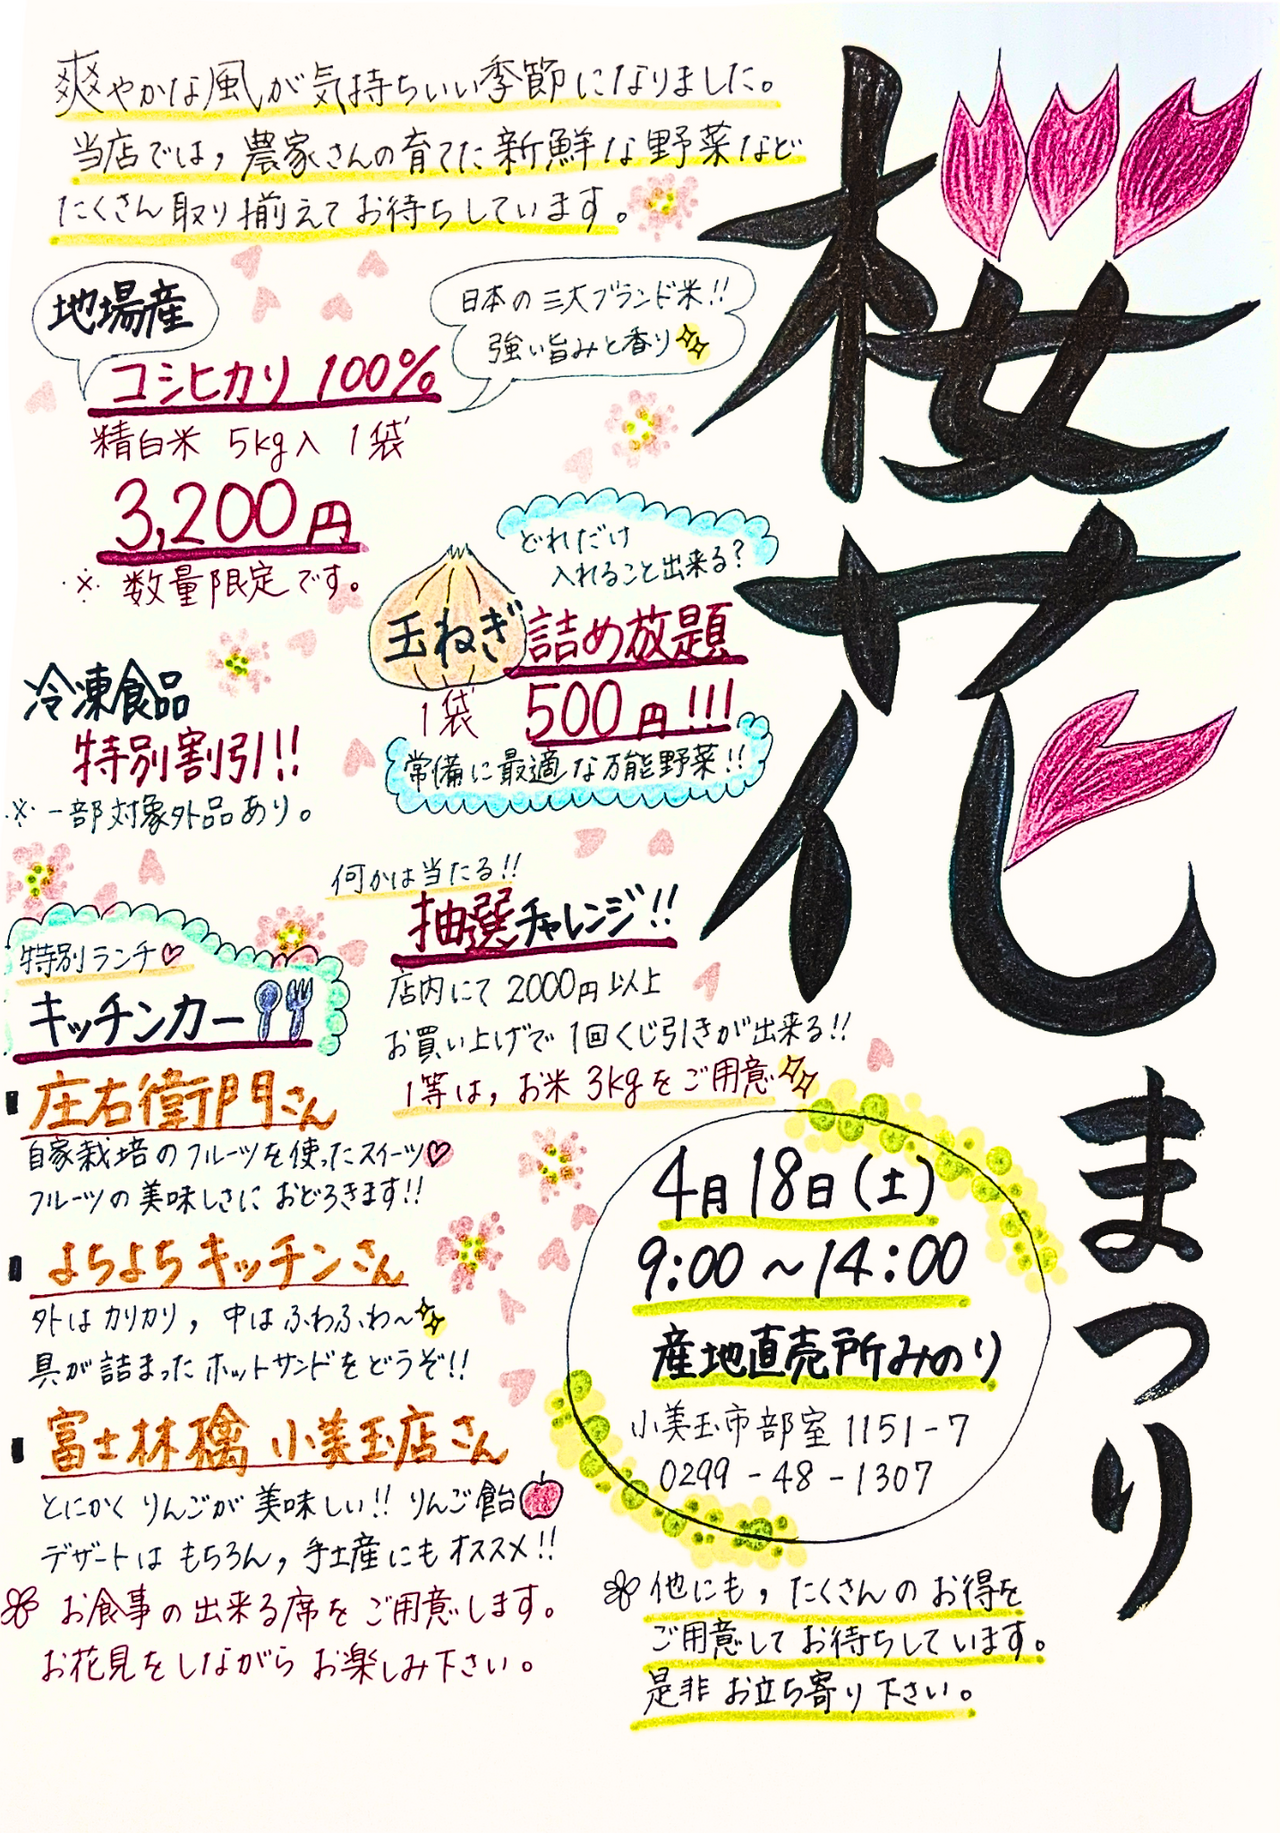 桜花まつり
爽やかな風が気持ちいい季節になりました。
当店では，農家さんの育てた新鮮な野菜など
たくさん取り揃えてお待ちしています。
地場産
コシヒカリ 100%
日本の三大ブランド米!!
強い旨みと香り
精白米 5kg入 1袋
3,200円
※ 数量限定です。
どれだけ
入れること出来る?
玉ねぎ詰め放題
1袋 500円!!!
常備に最適な万能野菜!!
冷凍食品
特別割引!!
※一部対象外品あり。
何かは当たる!!
抽選チャレンジ!!
店内にて2000円以上
お買い上げで1回くじ引きが出来る!!
1等は，お米3kgをご用意
特別ランチ♡
キッチンカー
庄右衛門さん
自家栽培のフルーツを使ったスイーツ♡
フルーツの美味しさにおどろきます!!
よちよちキッチンさん
外はカリカリ，中はふわふわ～
具が詰まったホットサンドをどうぞ!!
富士林檎 小美玉店さん
とにかくりんごが美味しい!! りんご飴
デザートはもちろん，手土産にもオススメ!!
お食事の出来る席をご用意します。
お花見をしながらお楽しみ下さい。
4月18日(土)
9:00～14:00
産地直売所みのり
小美玉市部室1151-7
0299-48-1307
他にも，たくさんのお得を
ご用意してお待ちしています。
是非お立ち寄り下さい。